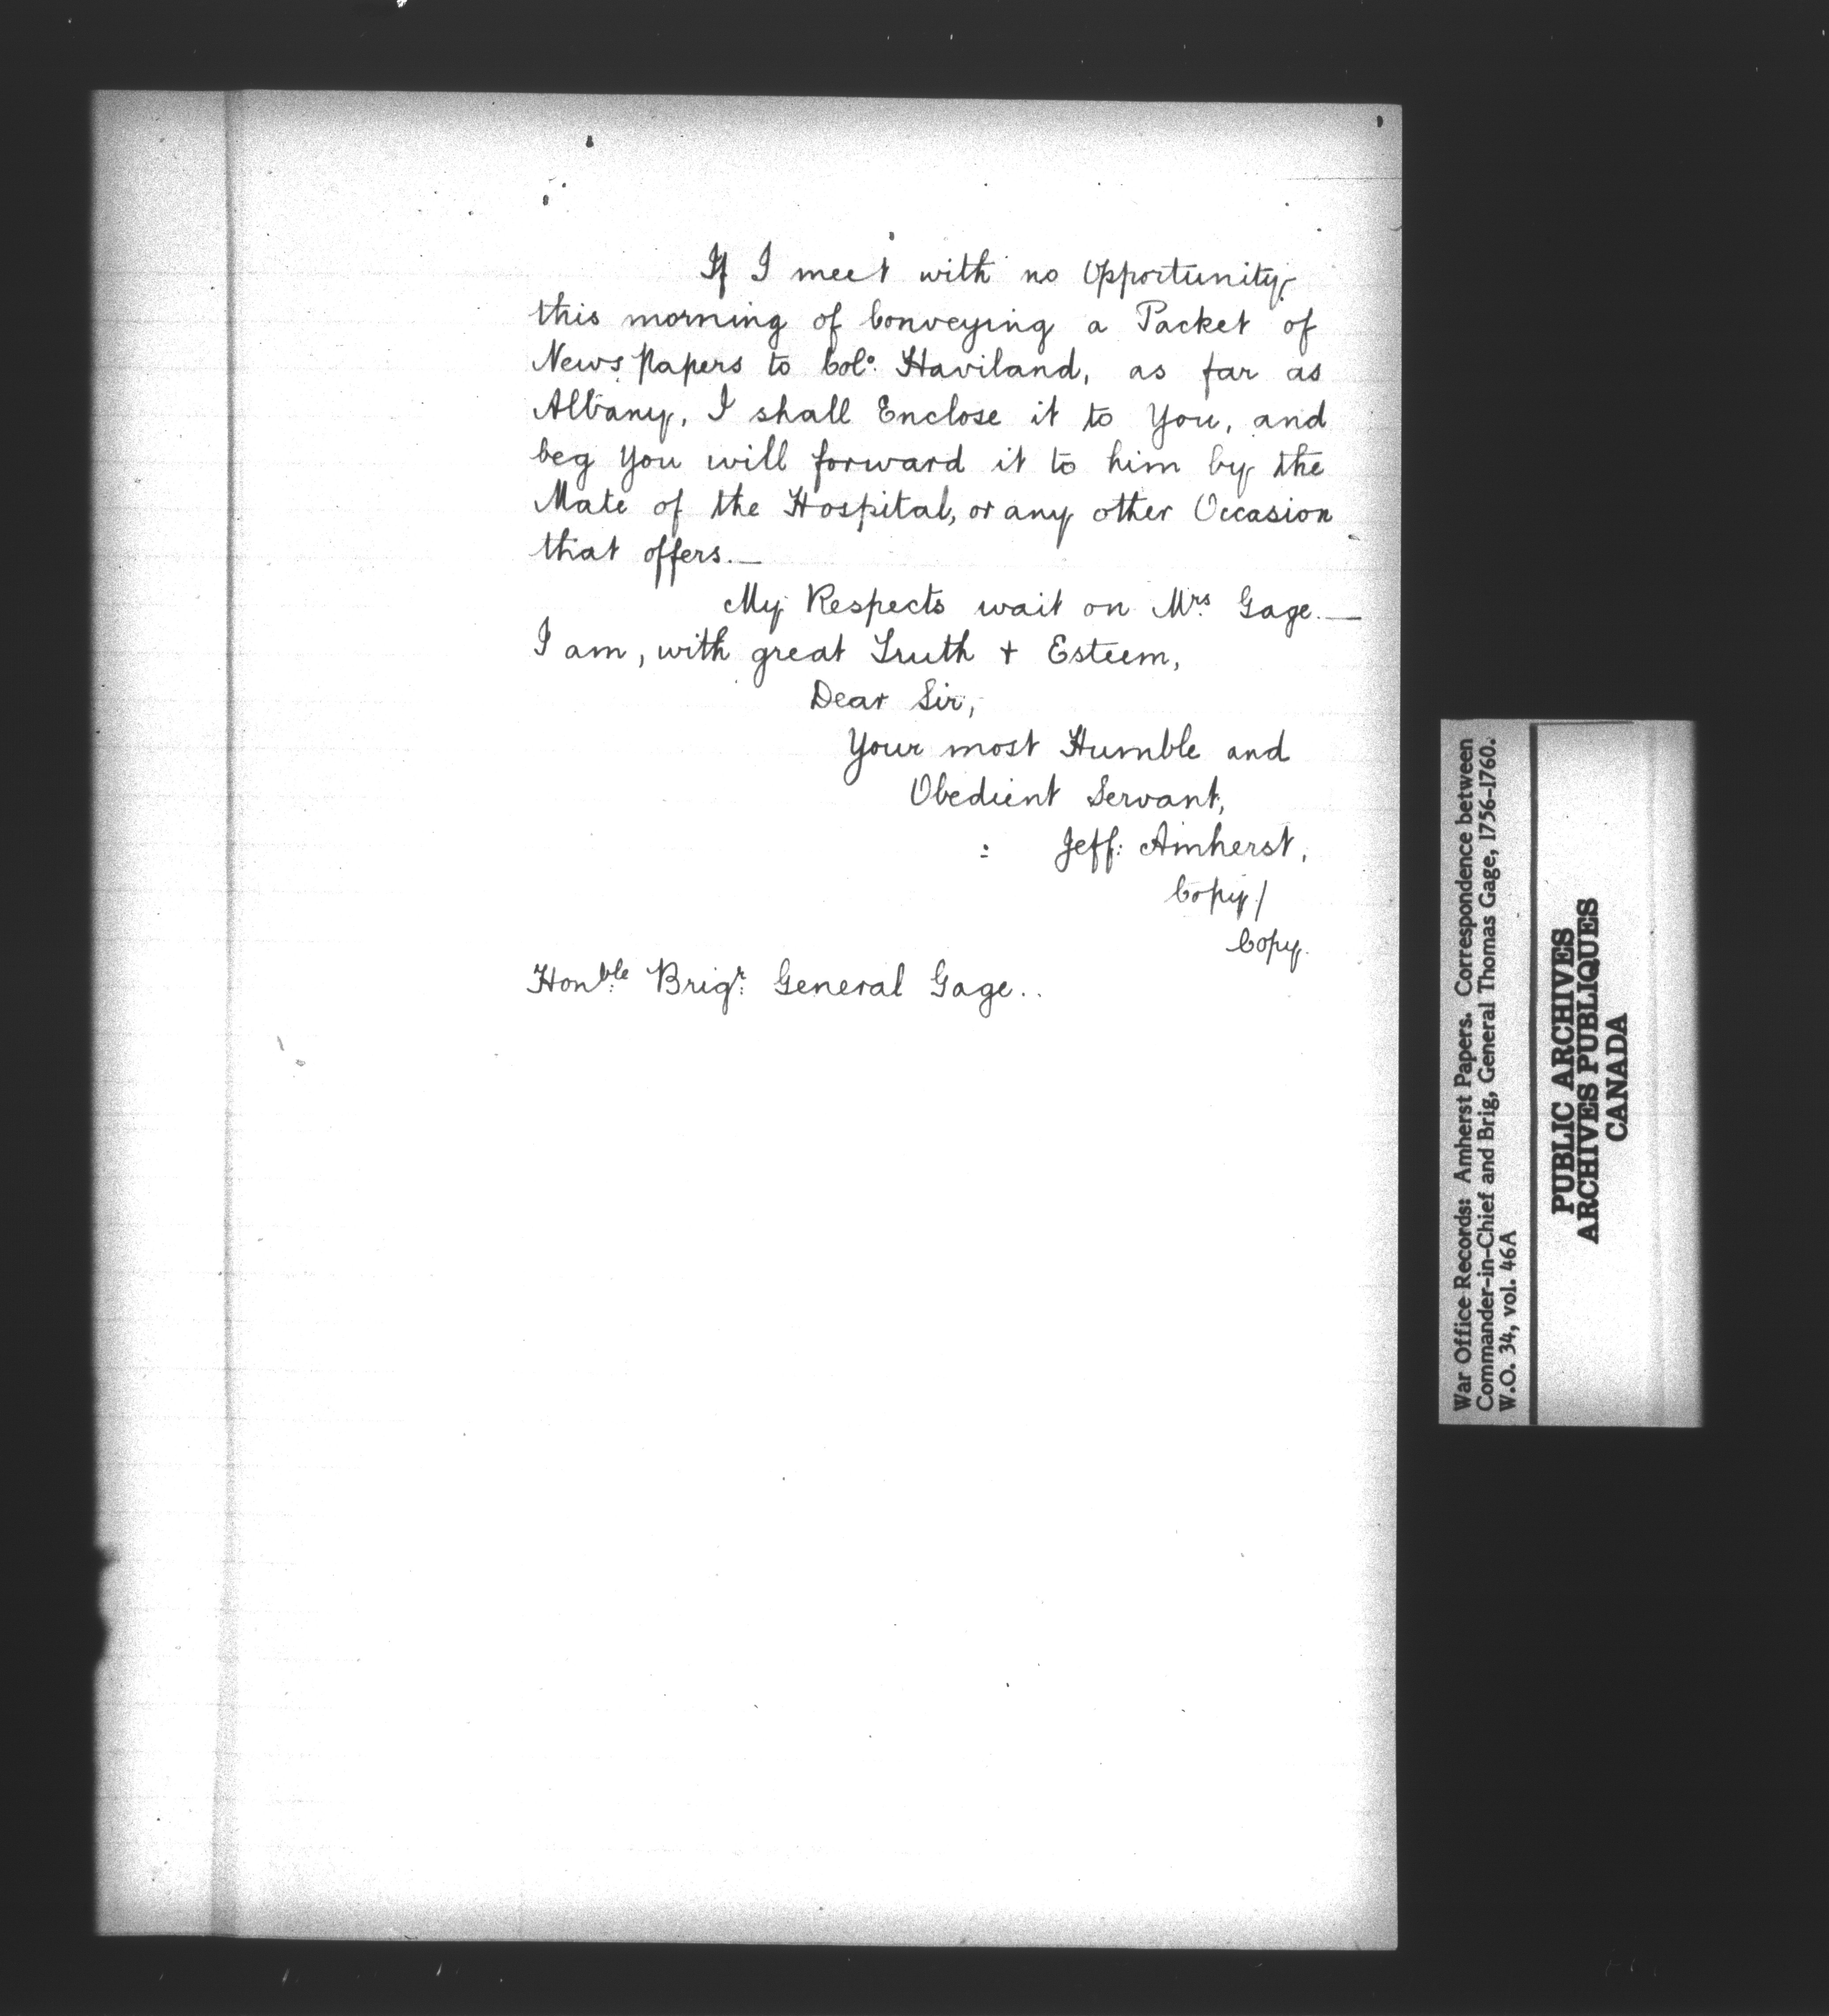 If I meet with no Opportunity
this morning of Conveying a Packet of
News Papers to Colo: Haviland, as far as
Albany, I shall Enclose it to You, and
beg You will forward it to him by the
Mate of the Hospital, or any other Occasion
that offers.—
My Respects wait on Mrs Gage.—
I am, with great Truth + Esteem,
Dear Sir,
Your most Humble and
Obedient Servant,
: Jeff: Amherst,
Copy/
Copy.
Honble: Brigr: General Gage..
War Office Records: Amherst Papers. Correspondence between
Commander-in-Chief and Brig, General Thomas Gage, 1756-1760.
W.O. 34, vol. 46A
PUBLIC ARCHIVES
ARCHIVES PUBLIQUES
CANADA